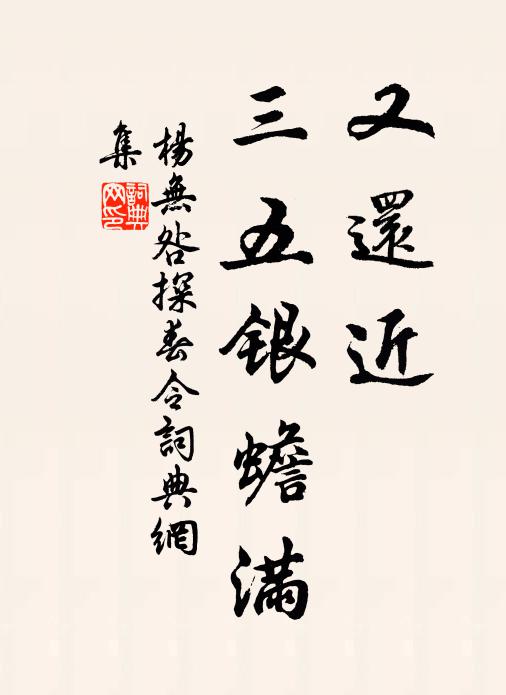 又還近
三五銀蟾滿
楊無咎探春令詞典網
集
詞典
网印